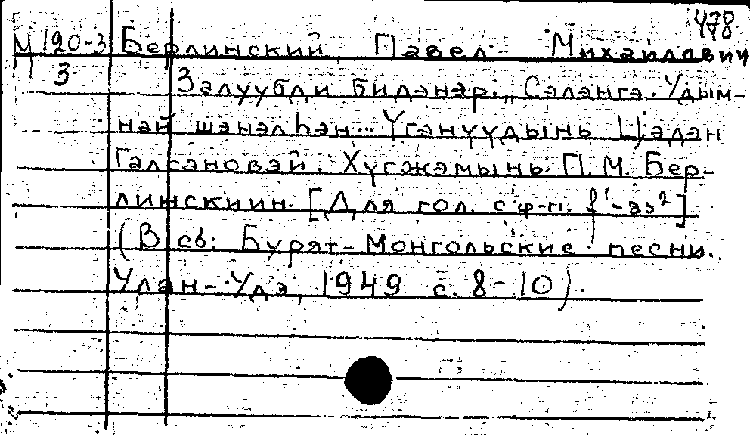 478
М 120-3 Берлинский, Павел Михайлович
3 Залуубди бидэнэр. Сэлэнгэ. Удым-
най шэнэлһэн... Үгэнүүдынь Цэдэн
Галсановэй. Хүгжэмынь П. М. Бер-
линскиин. [Для гол. с ф-п. f'-as²]
(В сб: Бурят-Монгольские песни.
Улан-Удэ, 1949 с. 8-10).